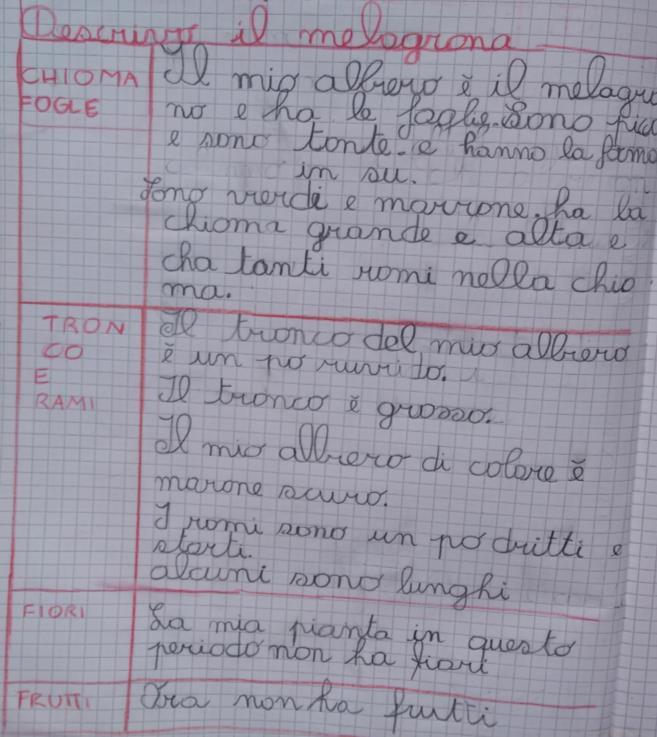 Descrivo il melograna
CHIOMA
FOGLE
Il mio albero è il melagra
no e ha le foglie. Sono
e sono tonte. e hanno la forma
in su.
sono verdi e marrone. ha la
chioma grande e alta e
cha tanti romi nella chio
ma.
TRON
CO
E
RAMI
Il tronco del mio albero
è un po ruvrido.
Il tronco è grosso.
Il mio albero di colore è
marone scuro.
I romi sono un po dritti e
storti.
alcuni sono lunghi
FIORI
La mia pianta in questo
periodo non ha fiori
FRUTTI
Ora non ha frutti